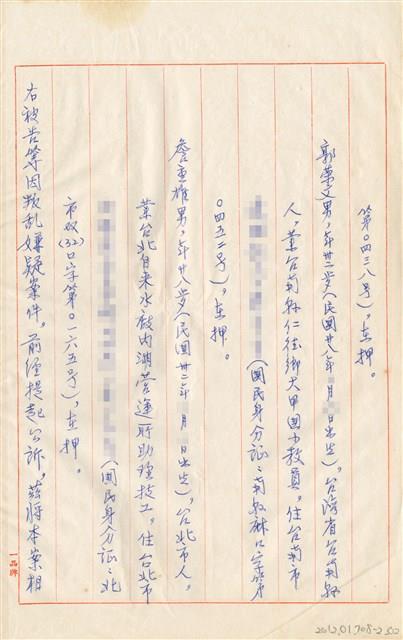 第○四三八号），在押。
郭荣文男，年卅二岁（民国廿八年 月 日出生），台湾省台南县
人，業台南縣仁德鄉大甲國小教員。住台南市
（國民身分証：南縣 口字第
○四五二号），在押。
詹重雄男，年廿八岁（民國卅二年 月 日出生），台北市人。
業台北自来水廠内湖营運所助理技工。住台北市
（國民身分証：北
市双(32)口字第○一六五号），在押。
右被告等因叛乱嫌疑案件。前经提起公訴。茲將本案相
一品牌
2012.01.0708-250